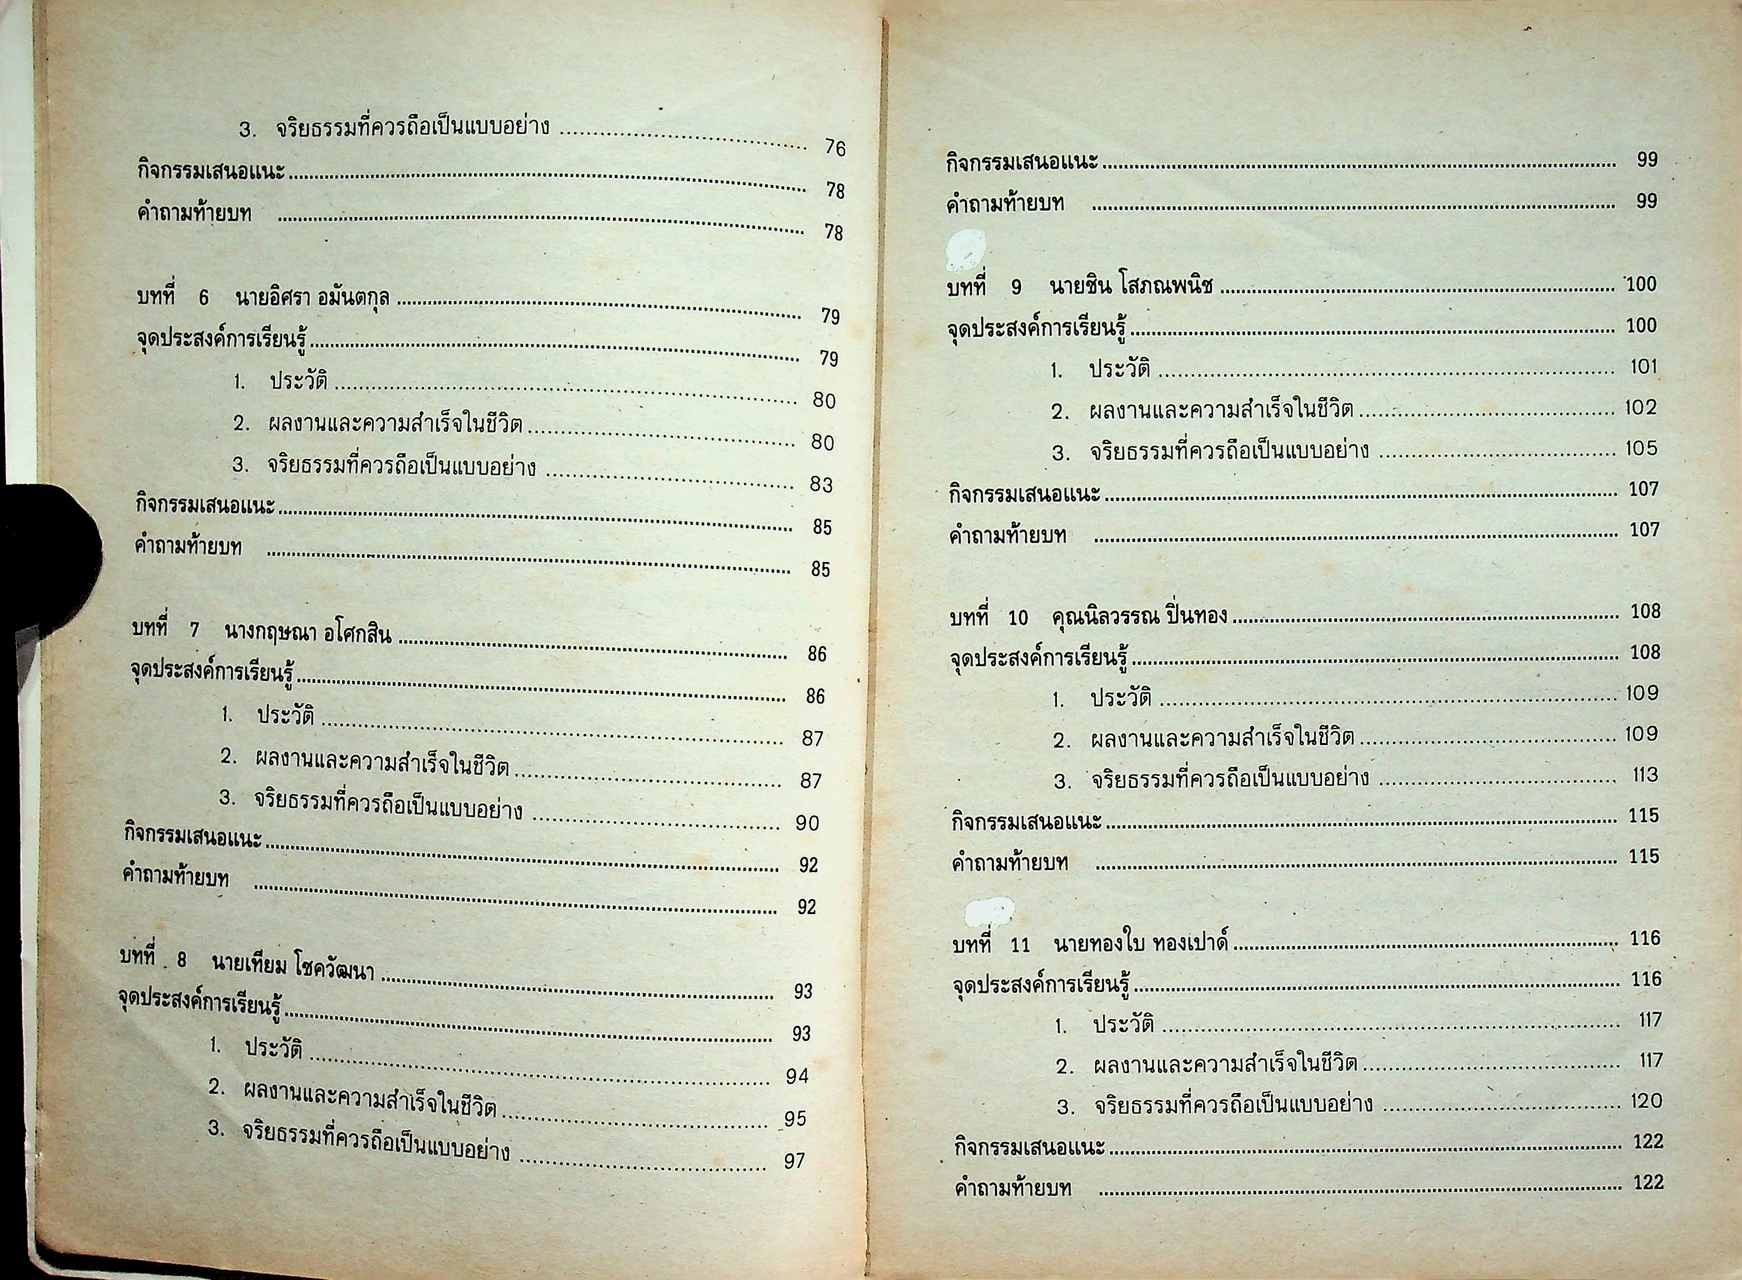 3. จริยธรรมที่ควรถือเป็นแบบอย่าง ........ 76
กิจกรรมเสนอแนะ ........ 78
คำถามท้ายบท ........ 78
บทที่ 6 นายอิศรา อมันตกุล ........ 79
จุดประสงค์การเรียนรู้ ........ 79
1. ประวัติ ........ 80
2. ผลงานและความสำเร็จในชีวิต ........ 80
3. จริยธรรมที่ควรถือเป็นแบบอย่าง ........ 83
กิจกรรมเสนอแนะ ........ 85
คำถามท้ายบท ........ 85
บทที่ 7 นางกฤษณา อโศกสิน ........ 86
จุดประสงค์การเรียนรู้ ........ 86
1. ประวัติ ........ 87
2. ผลงานและความสำเร็จในชีวิต ........ 87
3. จริยธรรมที่ควรถือเป็นแบบอย่าง ........ 90
กิจกรรมเสนอแนะ ........ 92
คำถามท้ายบท ........ 92
บทที่ 8 นายเทียม โชควัฒนา ........ 93
จุดประสงค์การเรียนรู้ ........ 93
1. ประวัติ ........ 94
2. ผลงานและความสำเร็จในชีวิต ........ 95
3. จริยธรรมที่ควรถือเป็นแบบอย่าง ........ 97
กิจกรรมเสนอแนะ ........ 99
คำถามท้ายบท ........ 99
บทที่ 9 นายชิน โสภณพนิช ........ 100
จุดประสงค์การเรียนรู้ ........ 100
1. ประวัติ ........ 101
2. ผลงานและความสำเร็จในชีวิต ........ 102
3. จริยธรรมที่ควรถือเป็นแบบอย่าง ........ 105
กิจกรรมเสนอแนะ ........ 107
คำถามท้ายบท ........ 107
บทที่ 10 คุณนิลวรรณ ปิ่นทอง ........ 108
จุดประสงค์การเรียนรู้ ........ 108
1. ประวัติ ........ 109
2. ผลงานและความสำเร็จในชีวิต ........ 109
3. จริยธรรมที่ควรถือเป็นแบบอย่าง ........ 113
กิจกรรมเสนอแนะ ........ 115
คำถามท้ายบท ........ 115
บทที่ 11 นายทองใบ ทองเปาด์ ........ 116
จุดประสงค์การเรียนรู้ ........ 116
1. ประวัติ ........ 117
2. ผลงานและความสำเร็จในชีวิต ........ 117
3. จริยธรรมที่ควรถือเป็นแบบอย่าง ........ 120
กิจกรรมเสนอแนะ ........ 122
คำถามท้ายบท ........ 122